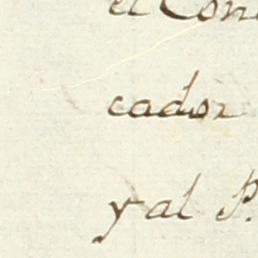 el Con
cador
y al P.